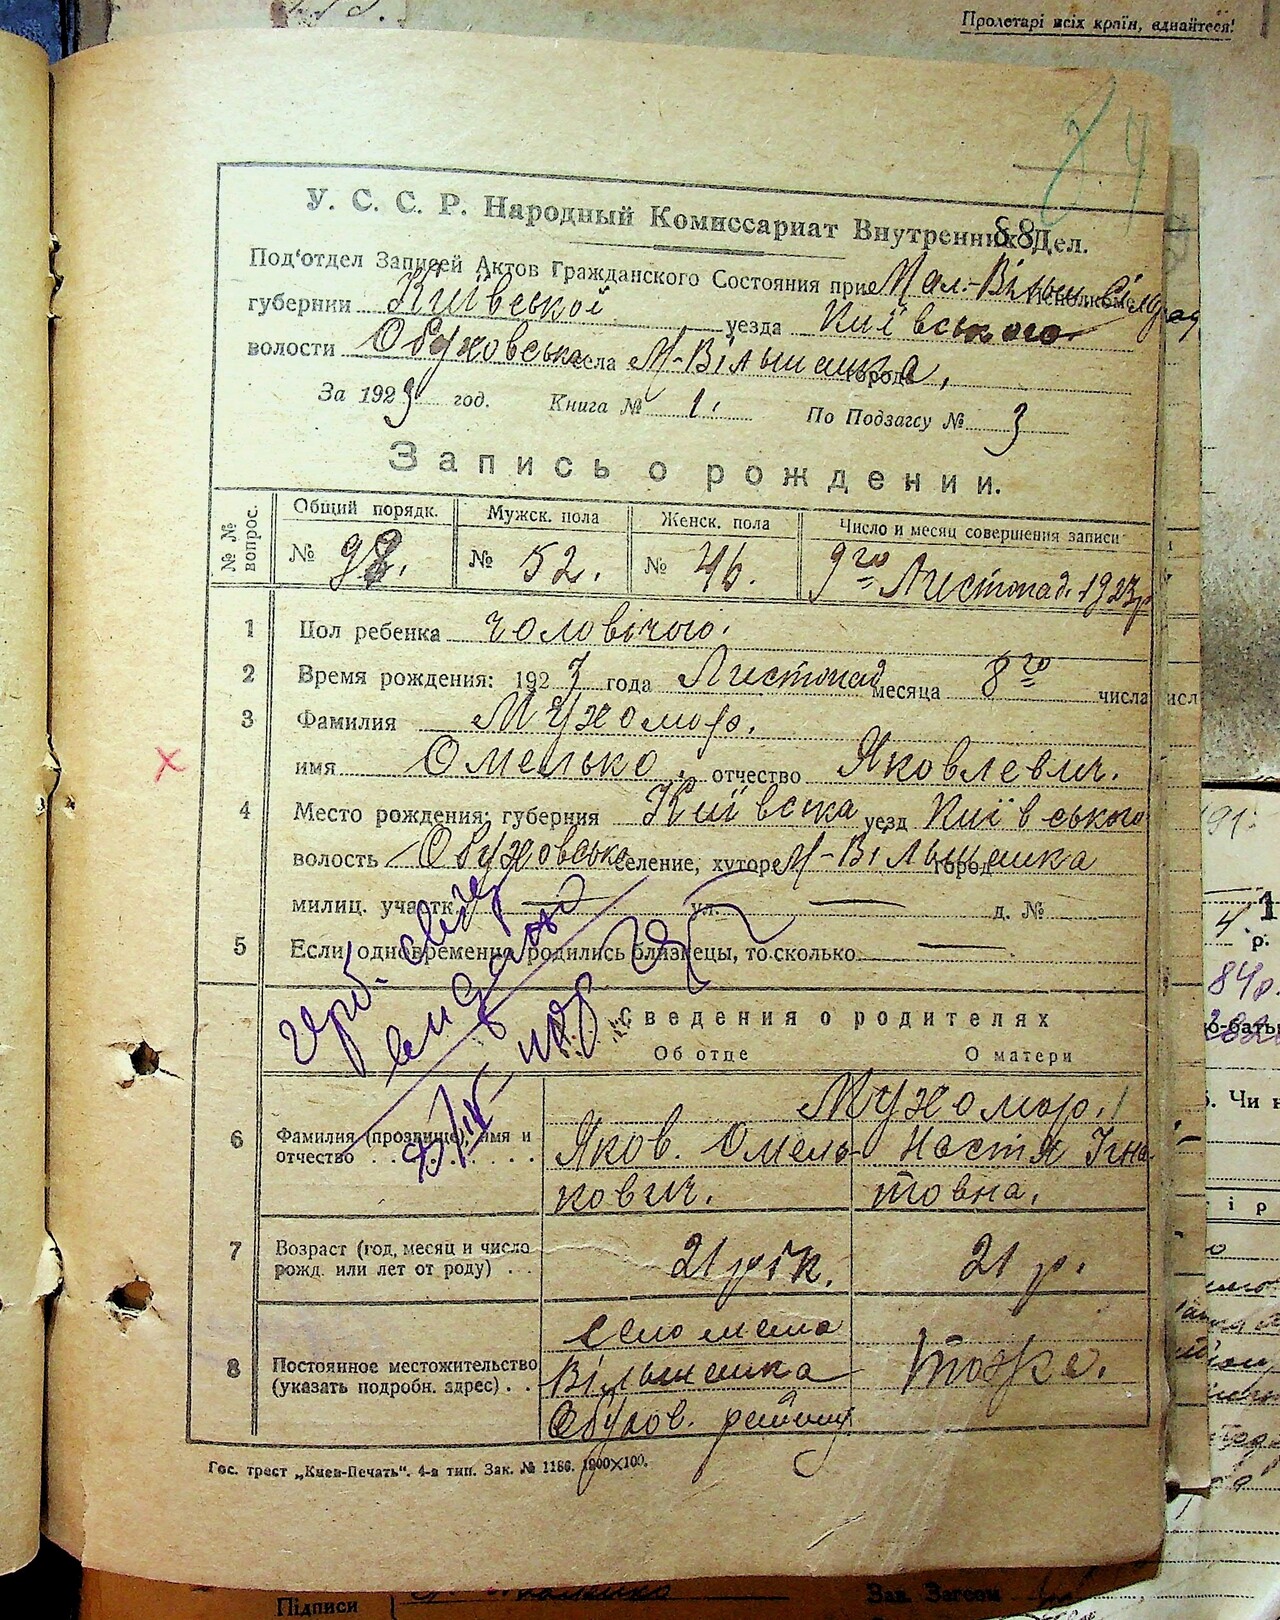 Пролетарі всіх країн, єднайтеся!
84
У. С. С. Р. Народный Комиссариат Внутренних Дел.
88
Под'отдел Записей Актов Гражданского Состояния при Мал.-Вільш. Сільрад Исполкоме
губернии Київської уезда Київського
волости Обуховська села М-Вільшанка, города
За 1923 год. Книга № 1. По Подзагсу № 3
Запись о рождении.
№ № вопрос.
Общий порядк. Мужск. пола Женск. пола Число и месяц совершения записи
№ 98. № 52. № 46. 9го Листопад. 1923р
1 Пол ребенка чоловічого.
2 Время рождения: 1923 года Листопад месяца 8го числа
3 Фамилия Мухомор.
имя Омелько. отчество Яковлевич.
4 Место рождения: губерния Київська уезд Київського
волость Обуховська селение, хутор М-Вільшанка город
милиц. участк. — ул. — д. №
5 Если одновременно родились близнецы, то сколько —
Сведения о родителях
Об отце О матери
Мухомор.
6 Фамилия (прозвище), имя и отчество . . . . . . . .
Яков. Омелькович.
Настя Ігнатовна.
7 Возраст (год, месяц и число рожд. или лет от роду) . . .
21 рік. 21 р.
8 Постоянное местожительство (указать подробн. адрес) . .
село мала
Вільшанка
Обухов. району
тоже.
Гос. трест „Киев-Печать“. 4-я тип. Зак. № 1186. 1900×100.
Підписи
Зав. Загсом